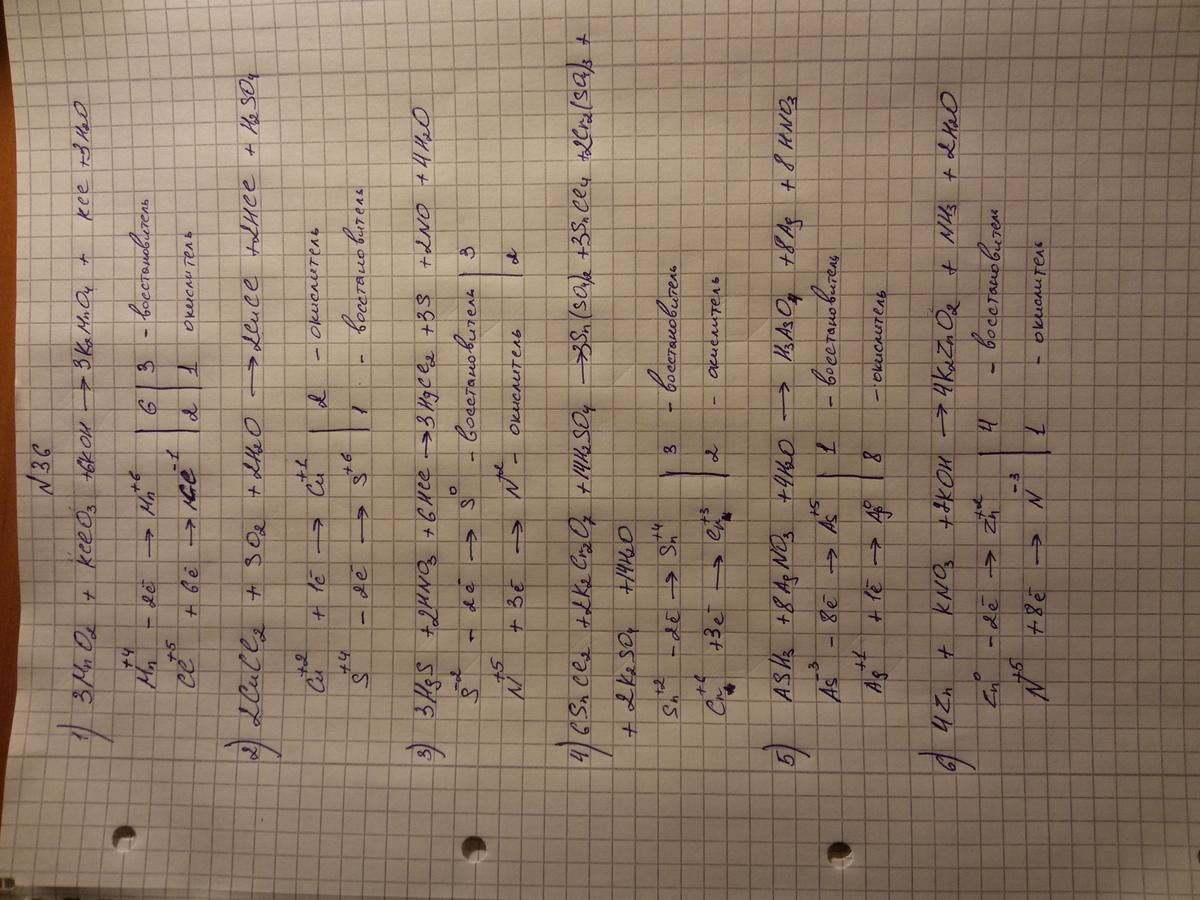 N36
1) 3MnO2 + KClO3 + 6KOH → 3K2MnO4 + KCl + 3H2O
Mn+4 - 2ē → Mn+6 | 6 | 3 - восстановитель
Cl+5 + 6ē → Cl-1 | 2 | 1 окислитель
2) 2CuCl2 + SO2 + 2H2O → 2CuCl + 2HCl + H2SO4
Cu+2 + 1ē → Cu+1 | 2 - окислитель
S+4 - 2ē → S+6 | 1 - восстановитель
3) 3HgS + 2HNO3 + 6HCl → 3HgCl2 + 3S + 2NO + 4H2O
S-2 - 2ē → S0 - восстановитель | 3
N+5 + 3ē → N+2 - окислитель | 2
4) 6SnCl2 + 2K2Cr2O7 + 14H2SO4 → 3Sn(SO4)2 + 3SnCl4 + 2Cr2(SO4)3 +
+ 2K2SO4 + 14H2O
Sn+2 - 2ē → Sn+4 | 3 - восстановитель
Cr+6 + 3ē → Cr+3 | 2 - окислитель
5) AsH3 + 8AgNO3 + 4H2O → H3AsO4 + 8Ag + 8HNO3
As-3 - 8ē → As+5 | 1 - восстановитель
Ag+1 + 1ē → Ag0 | 8 - окислитель
6) 4Zn + KNO3 + 7KOH → 4K2ZnO2 + NH3 + 2H2O
Zn0 - 2ē → Zn+2 | 4 - восстановител
N+5 + 8ē → N-3 | 1 - окислитель